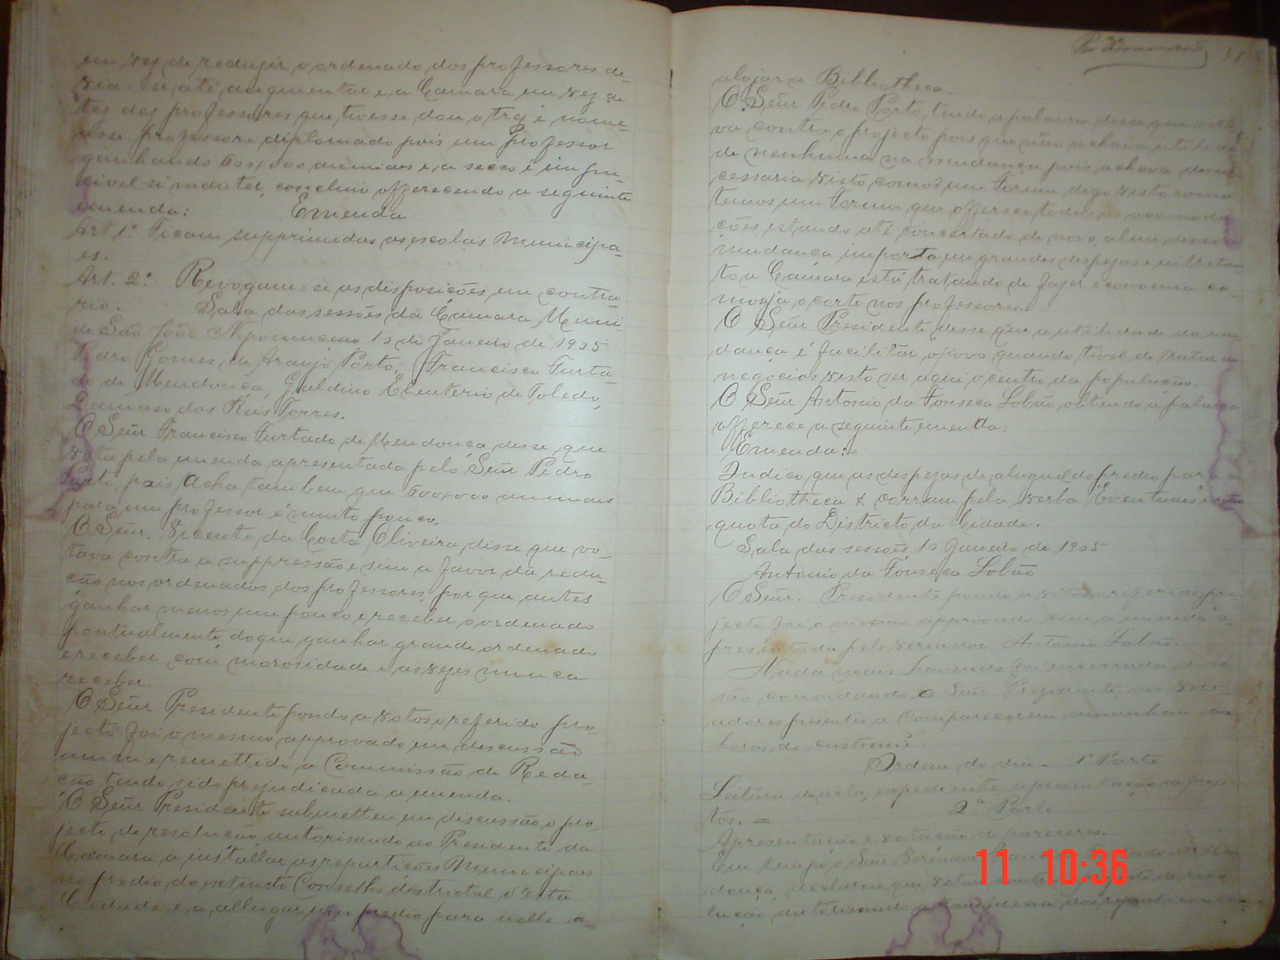 em vez de reduzir o ordenado dos professores de-
via-se até augmentar e a Camara em vez de
tez dos professores que tivesse dous o trez e nome-
asse professore diplomado pois um professor
ganhando 600$000 annuaes e a secco é im
si manter, concluio offerecendo a seguinte
emenda: Emenda
Art. 1º Ficam supprimidas as escolas Municipa-
es.
Art. 2º Revogam-se as disposições em contra
rio. Sala das sessões da Camara Muni
de São João Nepomuceno 10 de Janeiro de 1905
Pedro Gomes de Araujo Porto, Francisco Furta-
do de Mendonça, Galdino Eleuterio de Toledo,
Damaso dos Reis Torres.
O Señr Francisco Furtado de Mendonça disse que
vota pela emenda apresentada pelo Señr Pedro
Porto, pois acha tambem que 600$000 annuaes
para um professor é muito pouco.
O Señr. Vicente da Costa Oliveira disse que vo-
tava contra a suppressão e sim a favor da redu-
cção nos ordenados dos professores, por que antes
ganhar menos um pouco e receber o ordenado
pontualmente do que ganhar grande ordenado
e receber com morosidade e as vezes nunca
receber.
O Señr Presidente pondo a votos o referido pro
jecto foi o mesmo approvado em discussão
unica e remettido a Commissão de Reda-
cção tendo sido prejudicada a emenda.
O Señr Presidente submetteu em discussão o pro-
jecto de resolução autorisando ao Presidente da
Camara a installar as repartições Municipaes
no predio do extincto Conselho districtal d'esta
Cidade e a allugar um predio para nelle a-
alojar a Bibliotheca.
O Señr Pedro Porto, tendo a palavra disse que vota
va contra o projecto pois que não achava utilidade
de nenhuma na mudança pois achava desne-
cessaria visto comos um Forum digo visto como
temos um Forum que offerece todas as acomoda
ções, estando até concertado de novo, alem disso a
mudança importa em grandes despezas e entretan
to a Camara está tratando de fazer economia co-
mo seja o corte nos professores.
O Señr Presidente disse que a utilidade da mu
dança é facilitar o povo quando tiver de tratar
negocios visto ser aqui o centro da população.
O Señr Antonio da Fonseca Lobão, obtendo a palavra
offerece a seguinte emenda:
Emenda:
Indico que as despezas de aluguel do predio para a
Bibliotheca & corram pela verba Eventuais
quota do Districto da Cidade.
Sala das sessões 10 Janeiro de 1905
Antonio da Fonseca Lobão
O Señr. Presidente pondo a votos o referido pro
jecto foi o mesmo approvado com a emenda a-
presentada pelo vereador Antonio Lobão.
Nada mais havendo foi encerrada a ses
são convidando o Señr Presidente aos vere-
adores presentes a comparecerem amanhan as
horas do custume.
Ordem do dia - 1ª Parte
Leitura da acta, expediente, apresentação de projec
tos. =
2ª Parte
Apresentação e votação de pareceres.
Em tempo o Señr
donça, declarou que votou contra
lução autorisando a
11 10:36